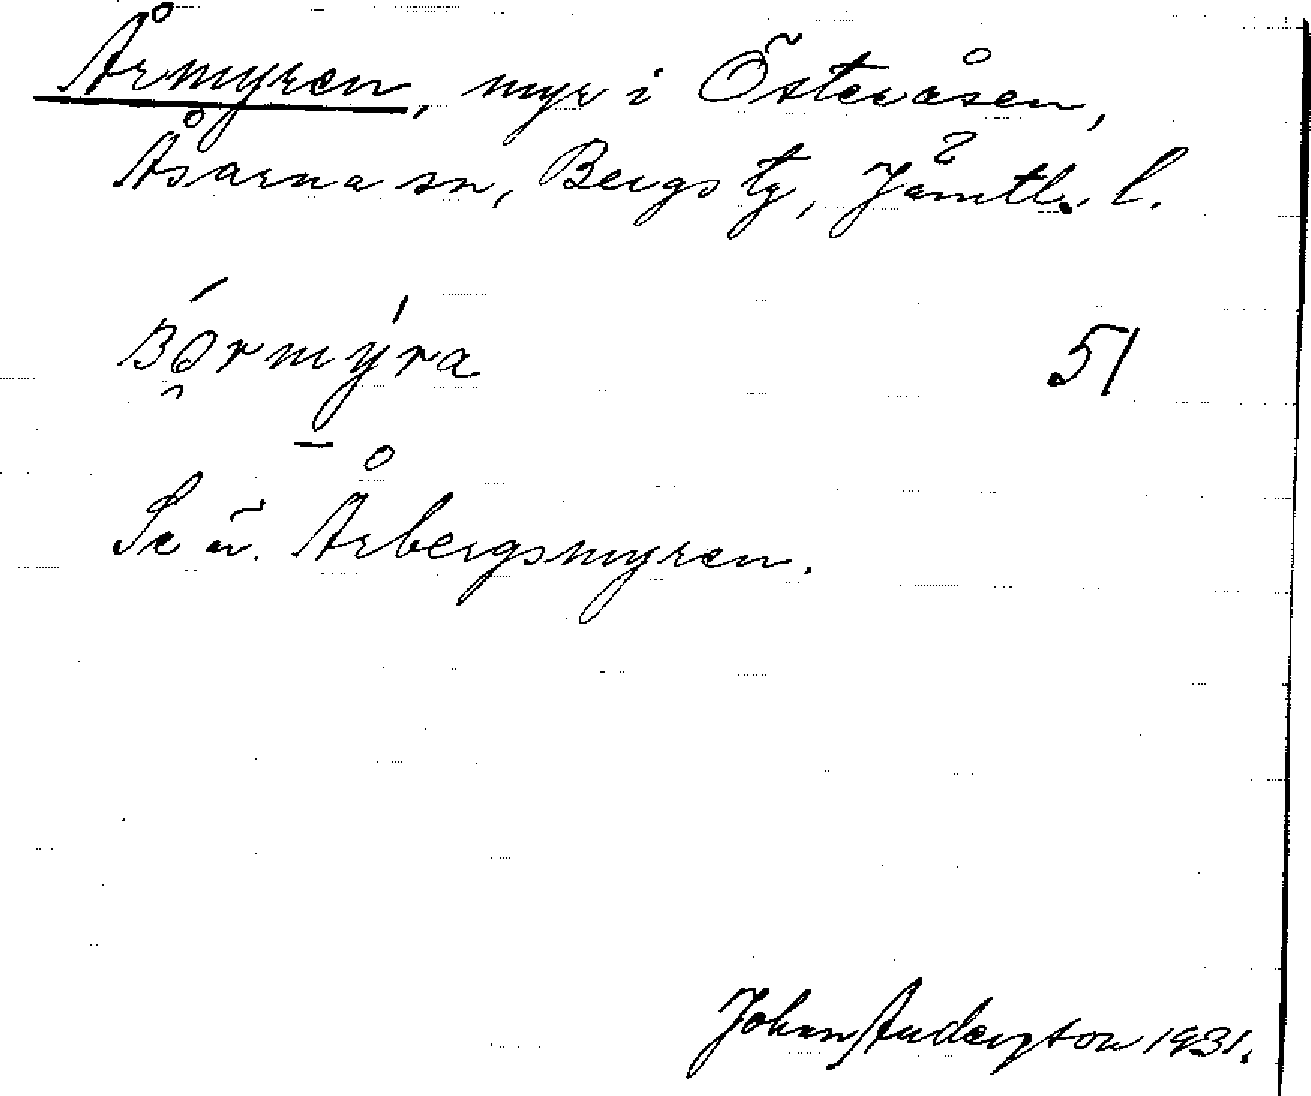 Årmyren, myr i Österåsen,
Åsarna sn, Bergs tg, Jämtl. l.
51
Se äv. Årbergsmyren.
Johan Anderzton 1931.